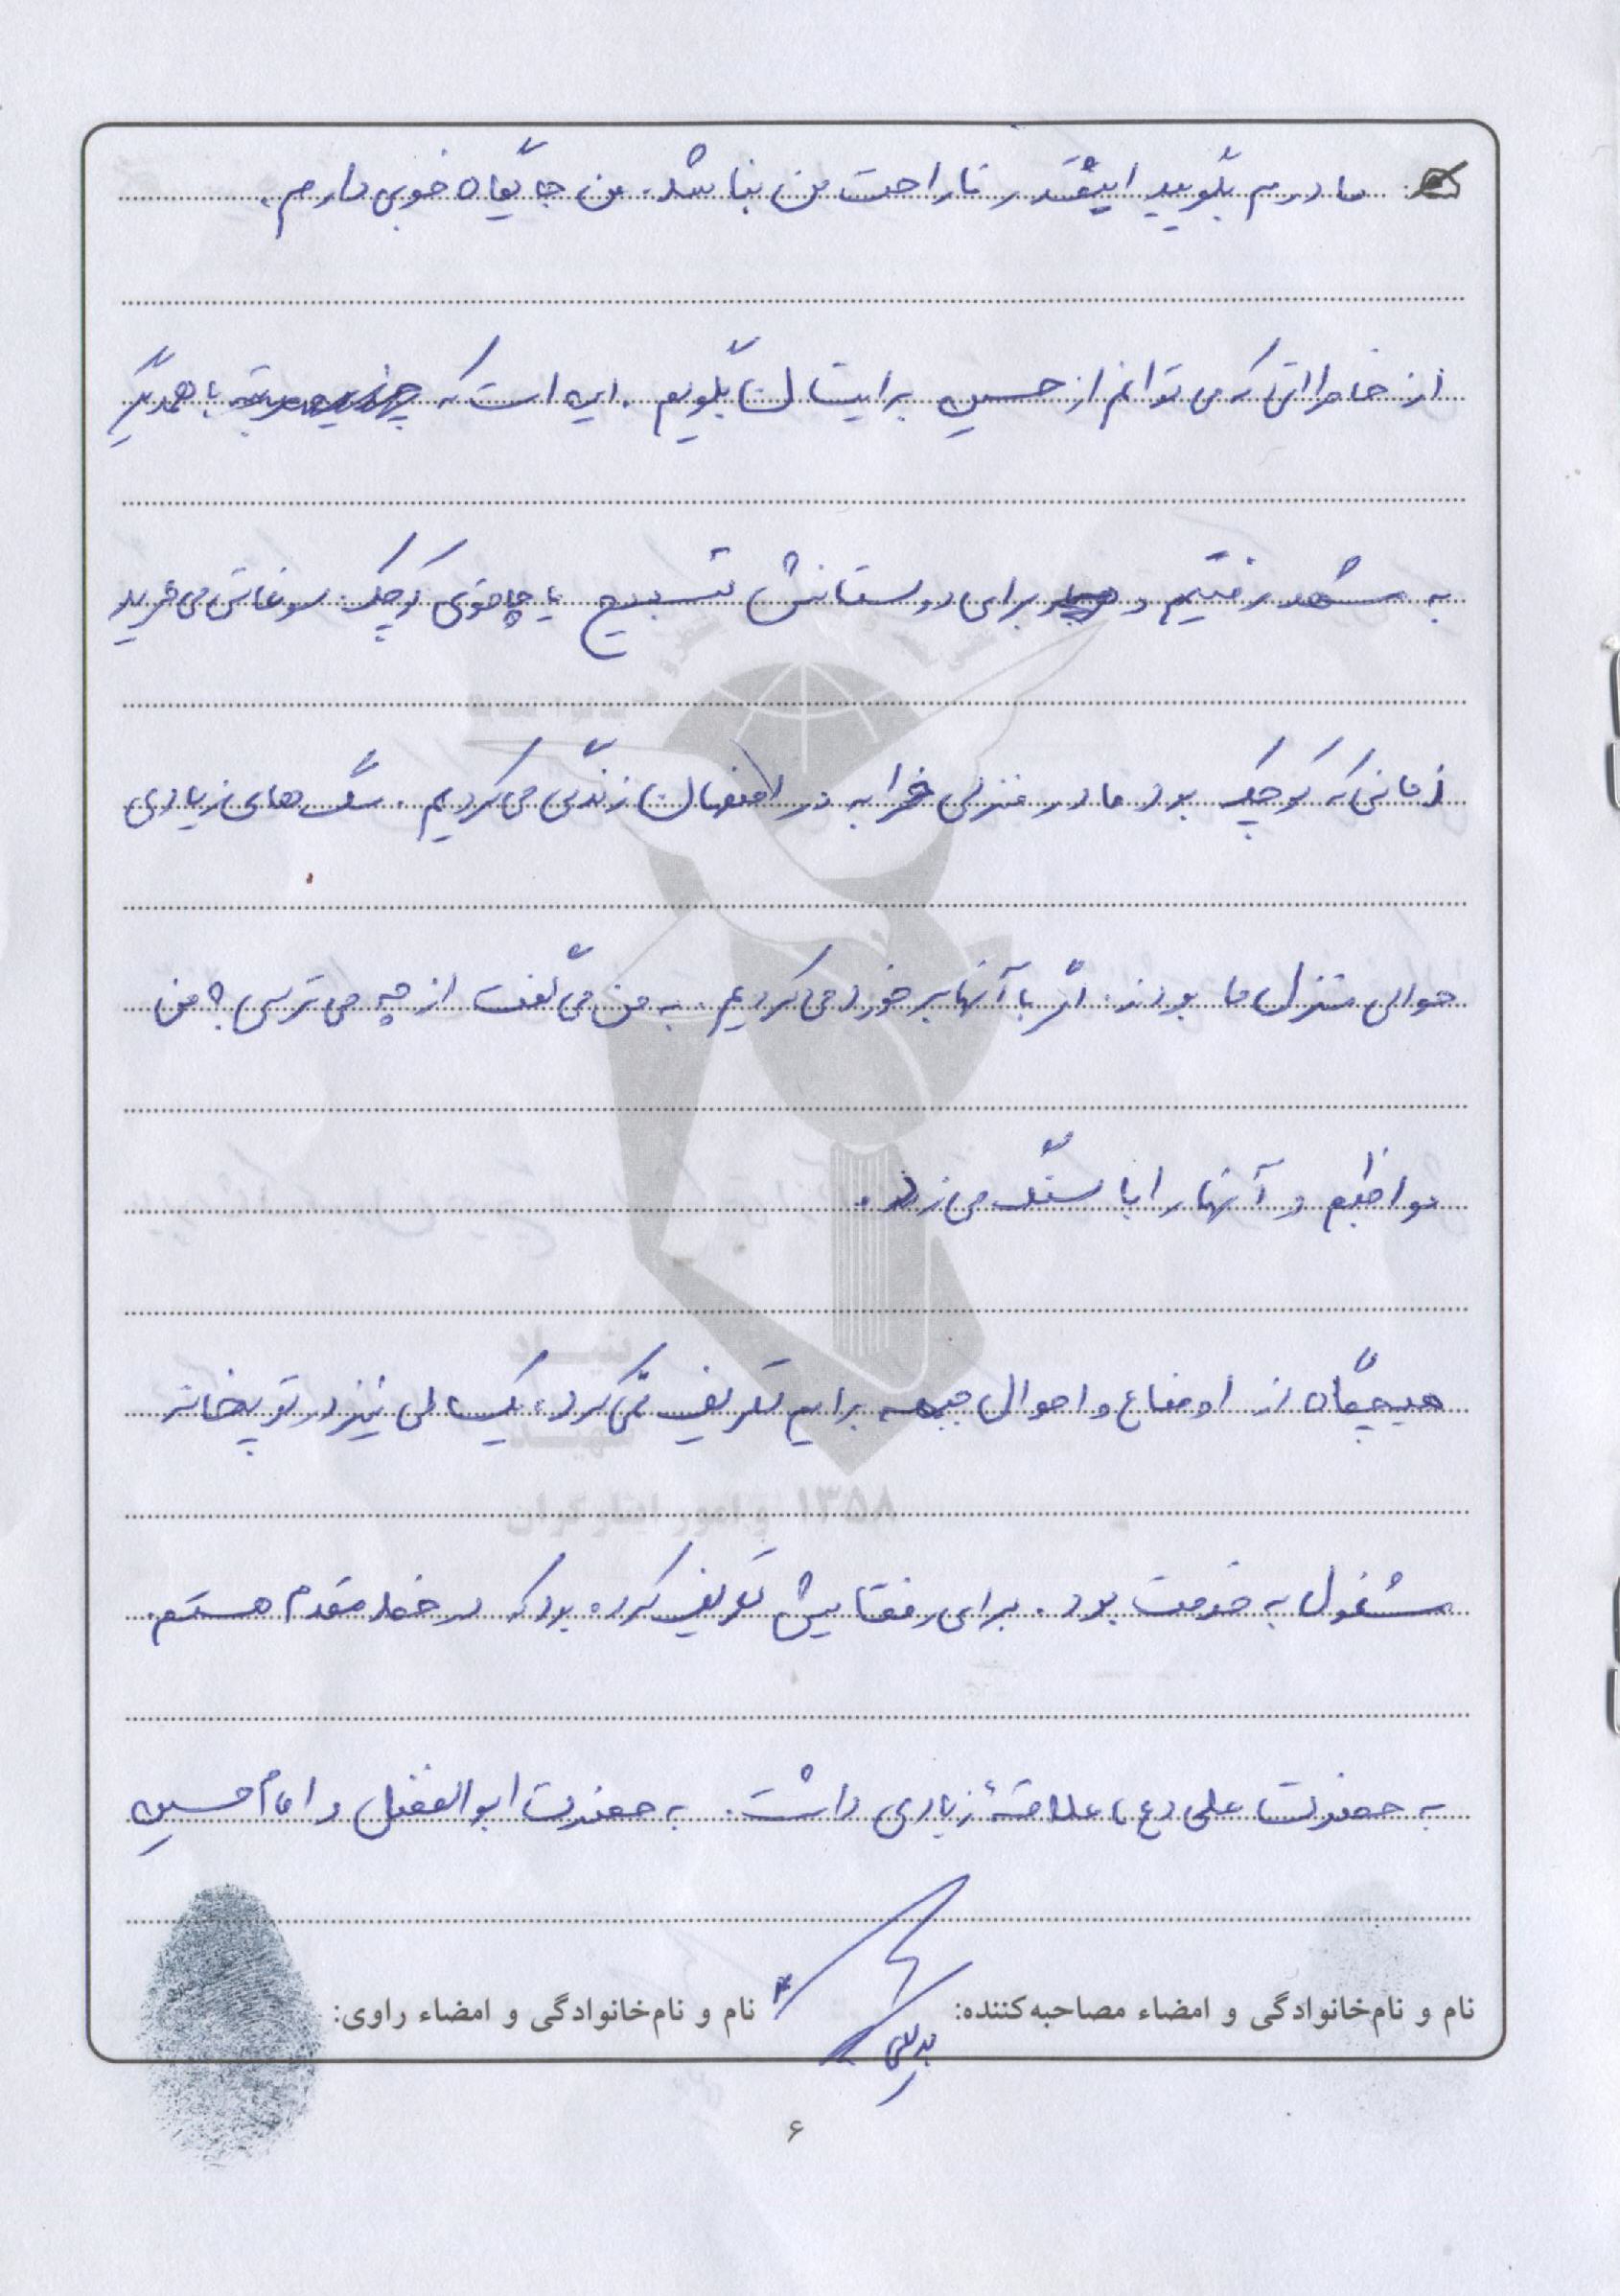 مادرم بگویید اینقدر ناراحت من نباشد. من جایگاه خوبی دارم.
از خاطراتی که می توانم از حسین برایتان بگویم. این است که با همدیگر
به مشهد رفتیم و برای دوستانش تسبیح یا چاقوی کوچک سوغاتی می خرید
زمانی که کوچک بود ما در منزلی خرابه در اصفهان زندگی می کردیم. سگ های زیادی
حوالی منزل ما بودند. اگر با آنها برخورد می کردیم. به من می گفت از چه می ترسی؟ من
مواظبم و آنها را با سنگ می زد.
هیچگاه از اوضاع و احوال جبهه برایم تعریف نمی کرد، یکسالی نیز در توپخانه
مشغول به خدمت بود. برای رفقایش تعریف کرده بود که در خط مقدم هستم.
به حضرت علی (ع) علاقهٔ زیادی داشت. به حضرت ابوالفضل و امام حسین
نام و نام‌خانوادگی و امضاء مصاحبه‌کننده:
نام و نام‌خانوادگی و امضاء راوی:
۶